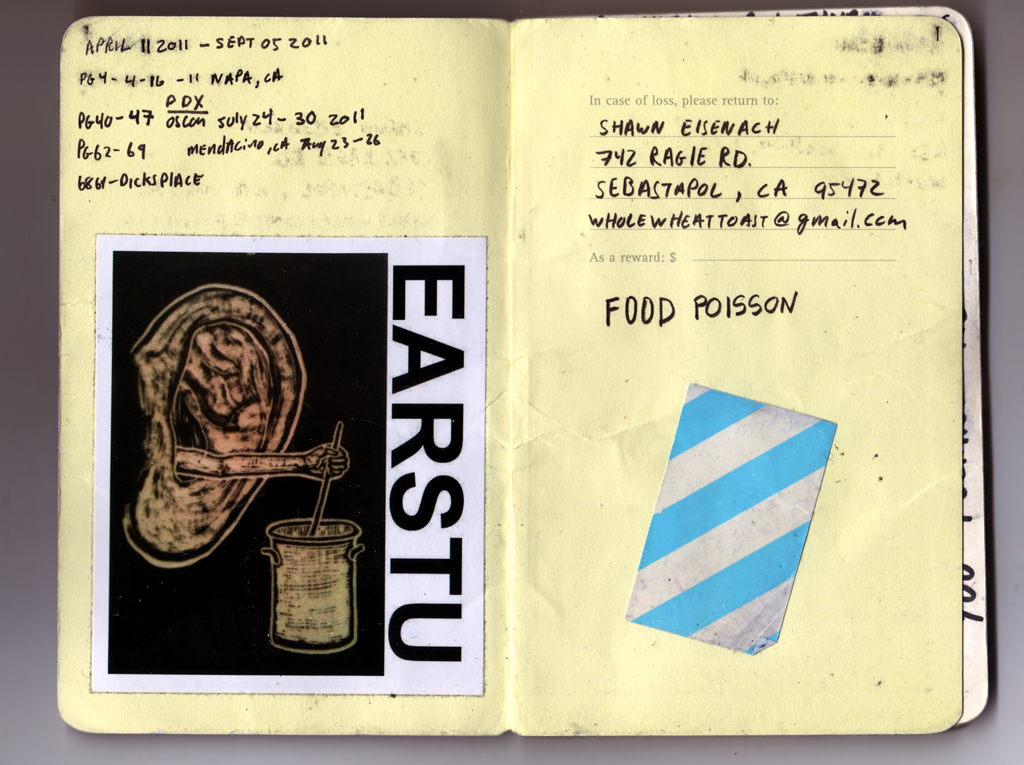 APRIL 11 2011 - SEPT 05 2011
PG4- 4-16 -11 NAPA, CA
PDX
PG40-47 OSCON July 24-30 2011
PG62-69 MENDACINO, CA Aug 23-26
6861-DICKSPLACE
EARSTU
1
In case of loss, please return to:
SHAWN EISENACH
742 RAGLE RD.
SEBASTAPOL, CA 95472
WHOLEWHEATTOAST@gmail.com
As a reward: $
FOOD POISSON